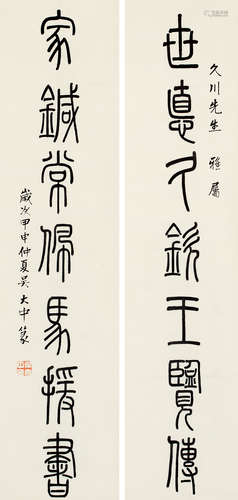 久川先生 雅屬
世悳久欽王覽傳
家鍼常佩馬援書
歲次甲申仲夏吳大中篆